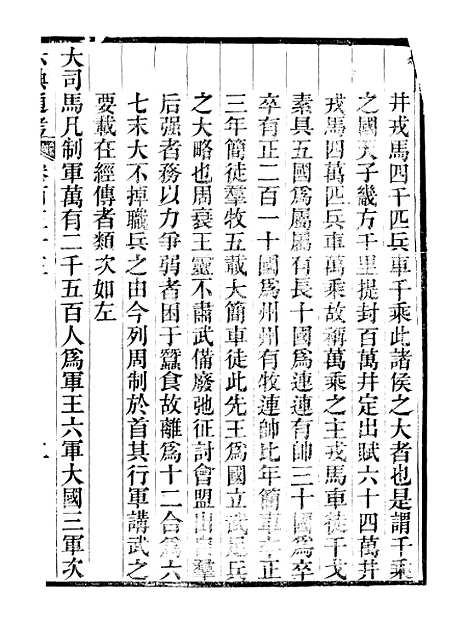 井戎馬四千匹兵車千乘此諸侯之大者也是謂千乘
之國天子畿方千里提封百萬井定出賦六十四萬井
戎馬四萬匹兵車萬乘故稱萬乘之主戎馬車徒干戈
素具五國爲屬屬有長十國爲連連有帥三十國爲卒
卒有正二百一十國爲州州有牧連帥比年簡車卒正
三年簡徒羣牧五載大簡車徒此先王爲國立武足兵
之大略也周衰王靈不肅武備廢弛征討會盟羣
后强者務以力爭弱者困于蠶食故離爲十二合爲六
七末大不掉職兵之由今列周制於首其行軍講武之
要載在經傳者類次如左
大司馬凡制軍萬有二千五百人爲軍王六軍大國三軍次
六典通考 卷百二十